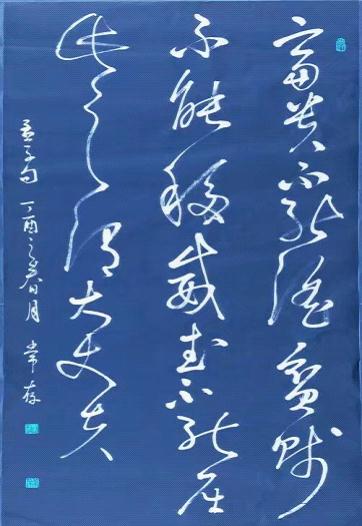 富贵不能淫贫贱
不能移威武不能屈
此之谓大丈夫
孟子句 丁酉之春月 常存